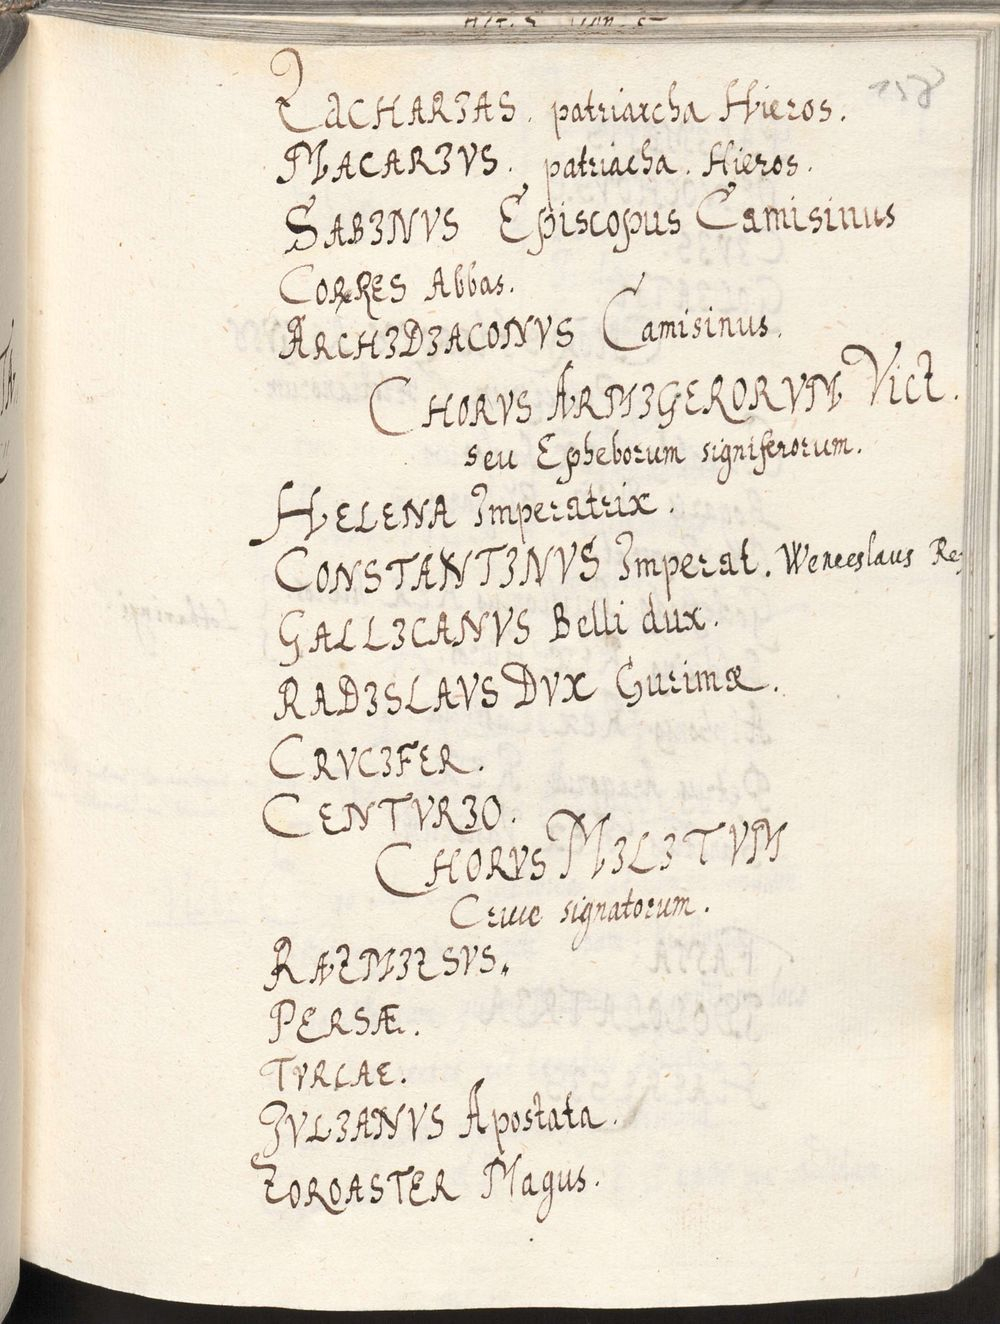 ZACHARIAS. patriarcha Hieros.
MACARIVS. patriacha. Hieros.
SABINVS Episcopus Camisinus
CORRES Abbas.
ARCHIDIACONVS Camisinus.
CHORVS ARMIGERORVM Vict.
seu Epheborum signiferorum.
HELENA Imperatrix.
CONSTANTINVS Imperat. Wenceslaus Rex
GALLICANVS Belli dux.
RADISLAVS DVX Gurimæ.
CRVCIFER.
CENTVRIO.
CHORVS MILITVM
Cruce signatorum.
PERSÆ.
TVRCAE.
IVLIANVS Apostata.
ZOROASTER Magus.